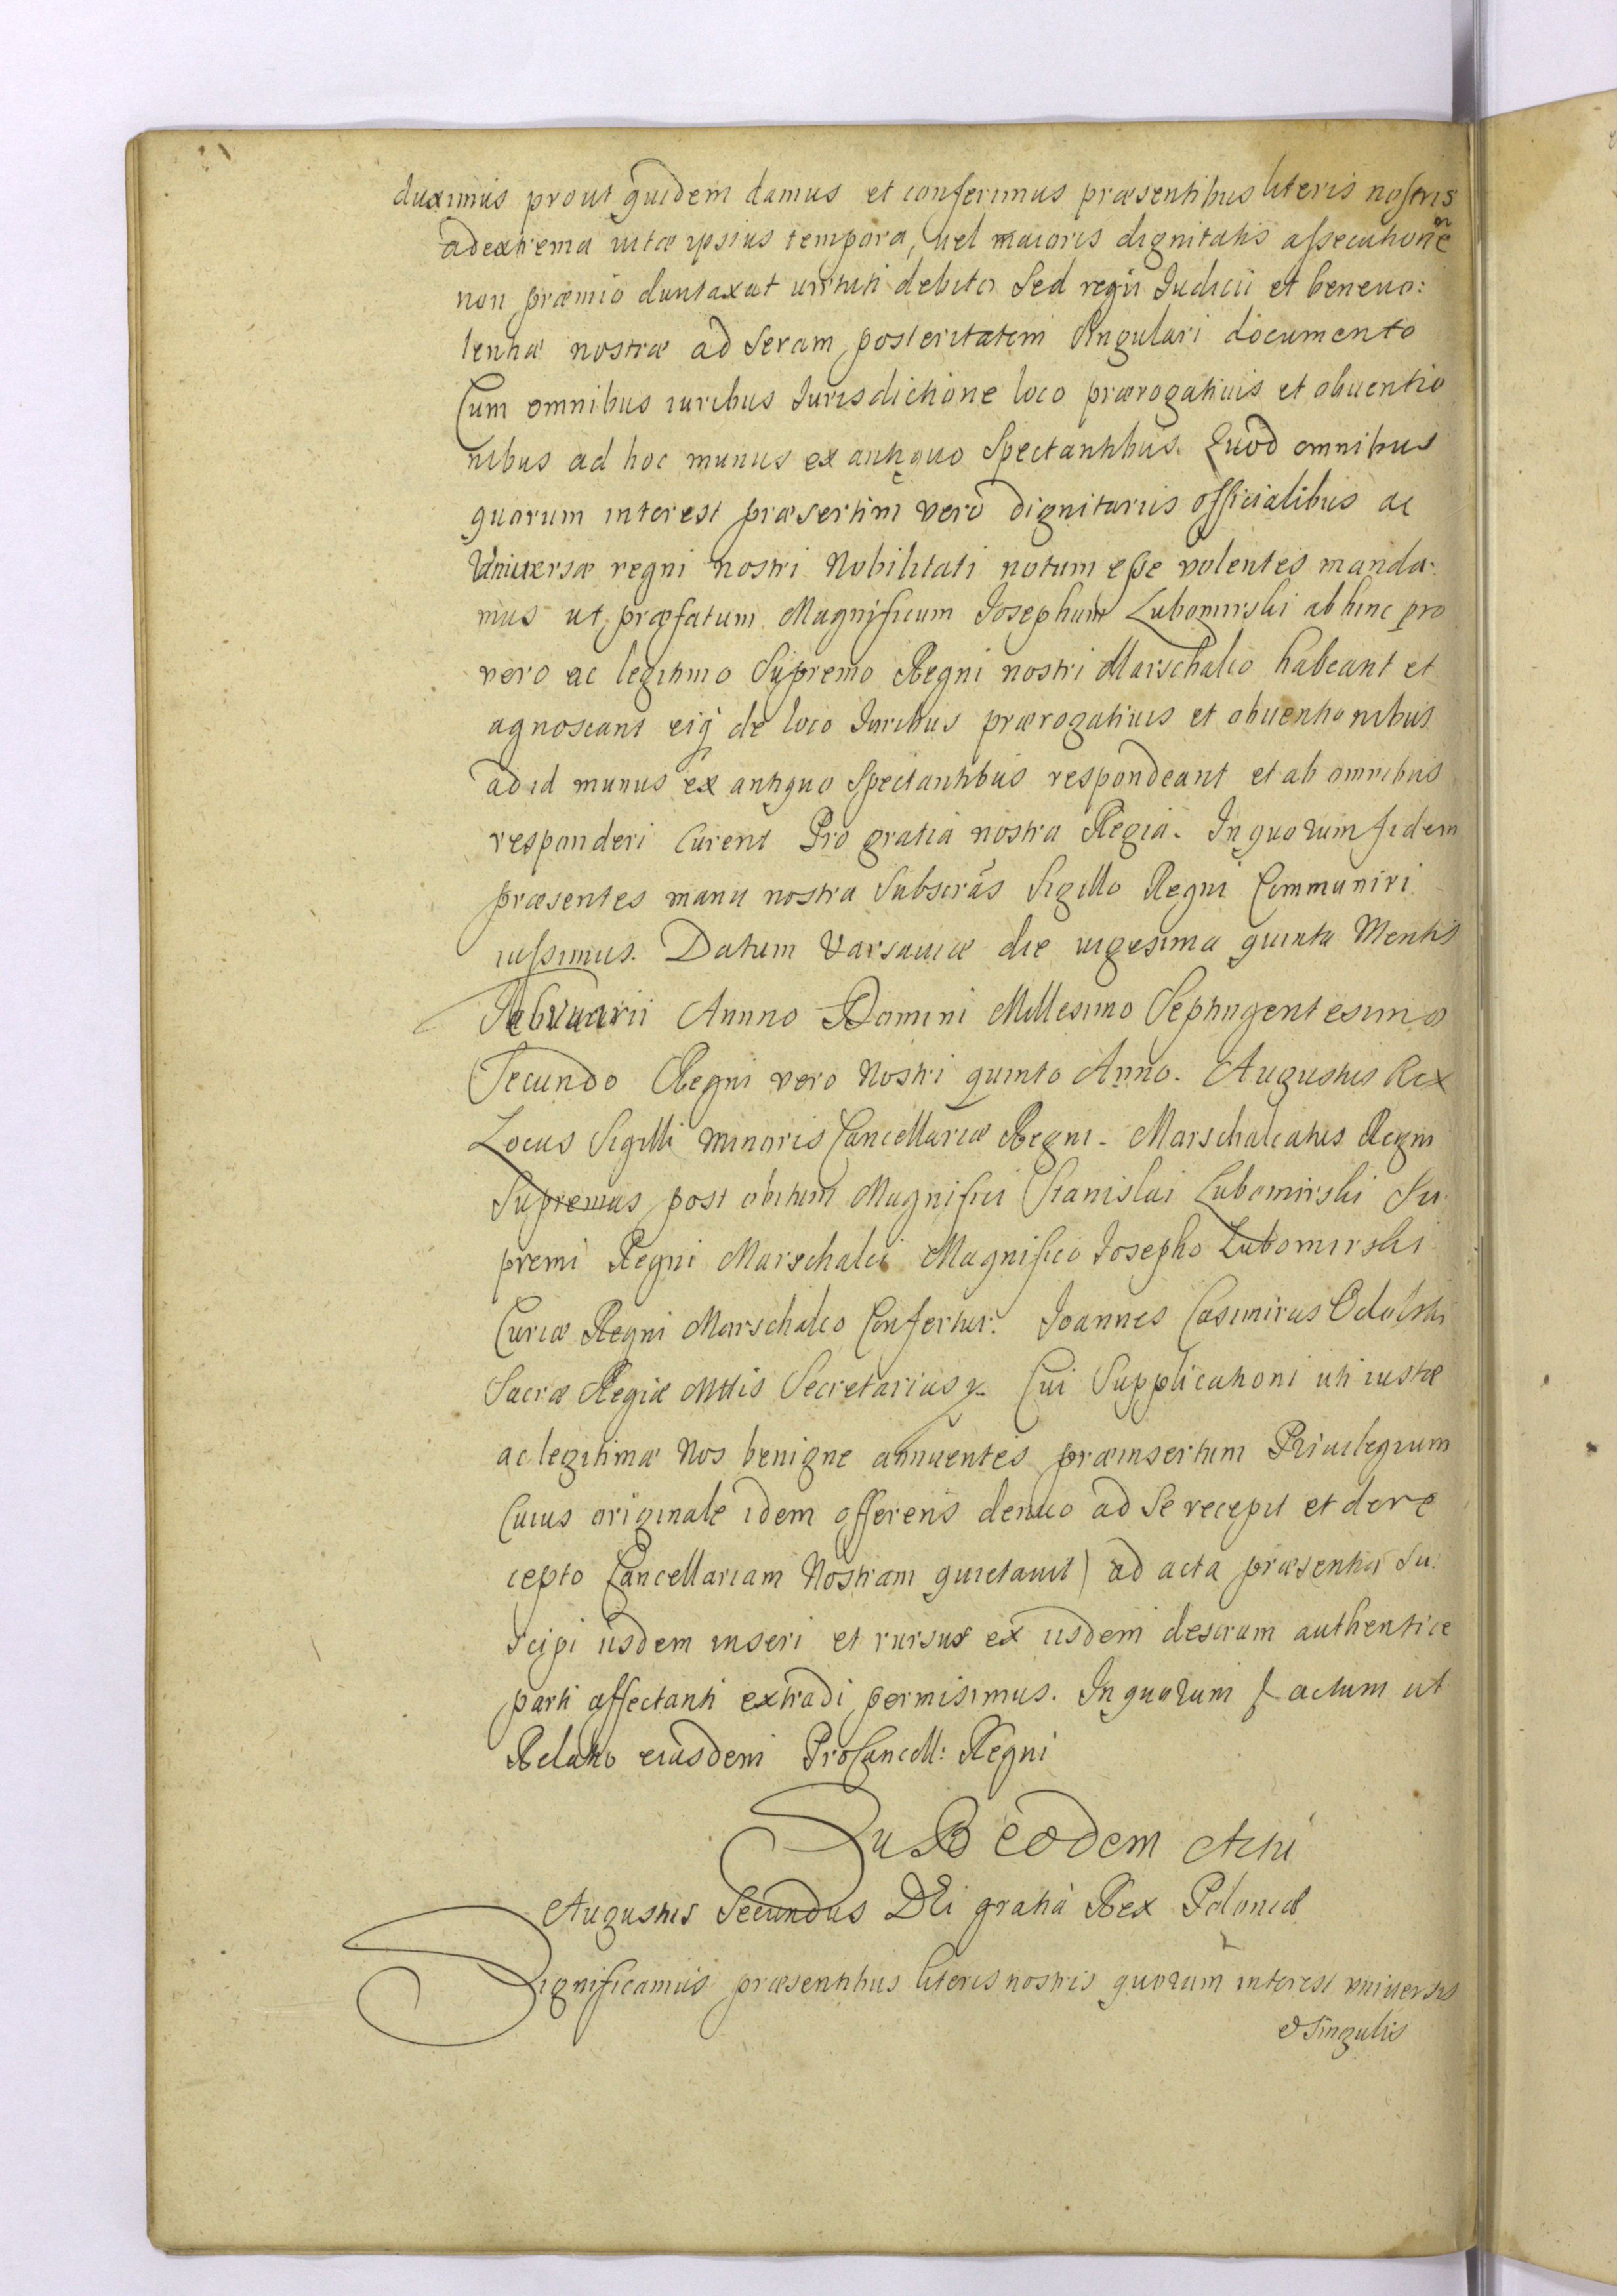 duximus prout quidem damus et conferimus præsentibus literis nostris
ad extrema uitæ ipsius tempora, uel maioris dignitatis assecutionẽ
non præmio duntaxat uirtuti debito Sed regii Iudicii et beneuo:
lentiæ nostræ ad Seram posteritatem Singulari documento
Cum omnibus iuribus Iurisdictione loco prærogatiuis et obuentio
nibus ad hoc munus ex antiquo Spectantibus. Quod omnibus
quorum interest præsertim vero dignitariis officialibus ac
Vniuersæ regni nostri Nobilitati notum esse volentes manda:
mus ut præfatum Magnificum Iosephum Lubomirski ab hinc pro
vero ac legitimo Supremo Regni nostri Marschalco habeant et
agnoscant eiq̃ de loco Iuribus prærogatiuis et obuentionibus
ad id munus ex antiquo Spectantibus respondeant et ab omnibus
responderi Curent Pro gratia nostra Regia. In quorum fidem
præsentes manu nostra Subscrãs Sigillo Regni Communiri
iussimus. Datum Varsauiæ die uigesima quinta Mensis
Februarii Annno Domini Millesimo Septingentesimo
Secundo Regni vero Nostri quinto Anno. Augustus Rex
Locus Sigilli minoris Cancellariæ Regni. Marschalcatus Regni
Supremus post obitum Magnifici Stanislai Lubomirski Su
premi Regni Marschalci Magnifico Iosepho Lubomirski
Curiæ Regni Marschalco Confertur. Ioannes Casimirus Odolski
Sacræ Regiæ Mttis Secretarius Cui Supplicationi uti iustæ
ac legitimæ Nos benigne annuentes præinsertum Priuilegium
Cuius originale idem offerens denuo ad Se recepit et de re
cepto Cancellariam Nostram quietauit) ad acta præsentia Su:
scipi iisdem inseri et rursus ex iisdem descrum authentice
parti affectanti extradi permisimus. In quorum f actum ut
Relatio eiusdem ProCancell: Regni
SuB eodem Actu
Augustus Secundus DEi gratia Rex Poloniæ
Significamus præsentibus literis nostris quorum interest vniuersis
et Singulis